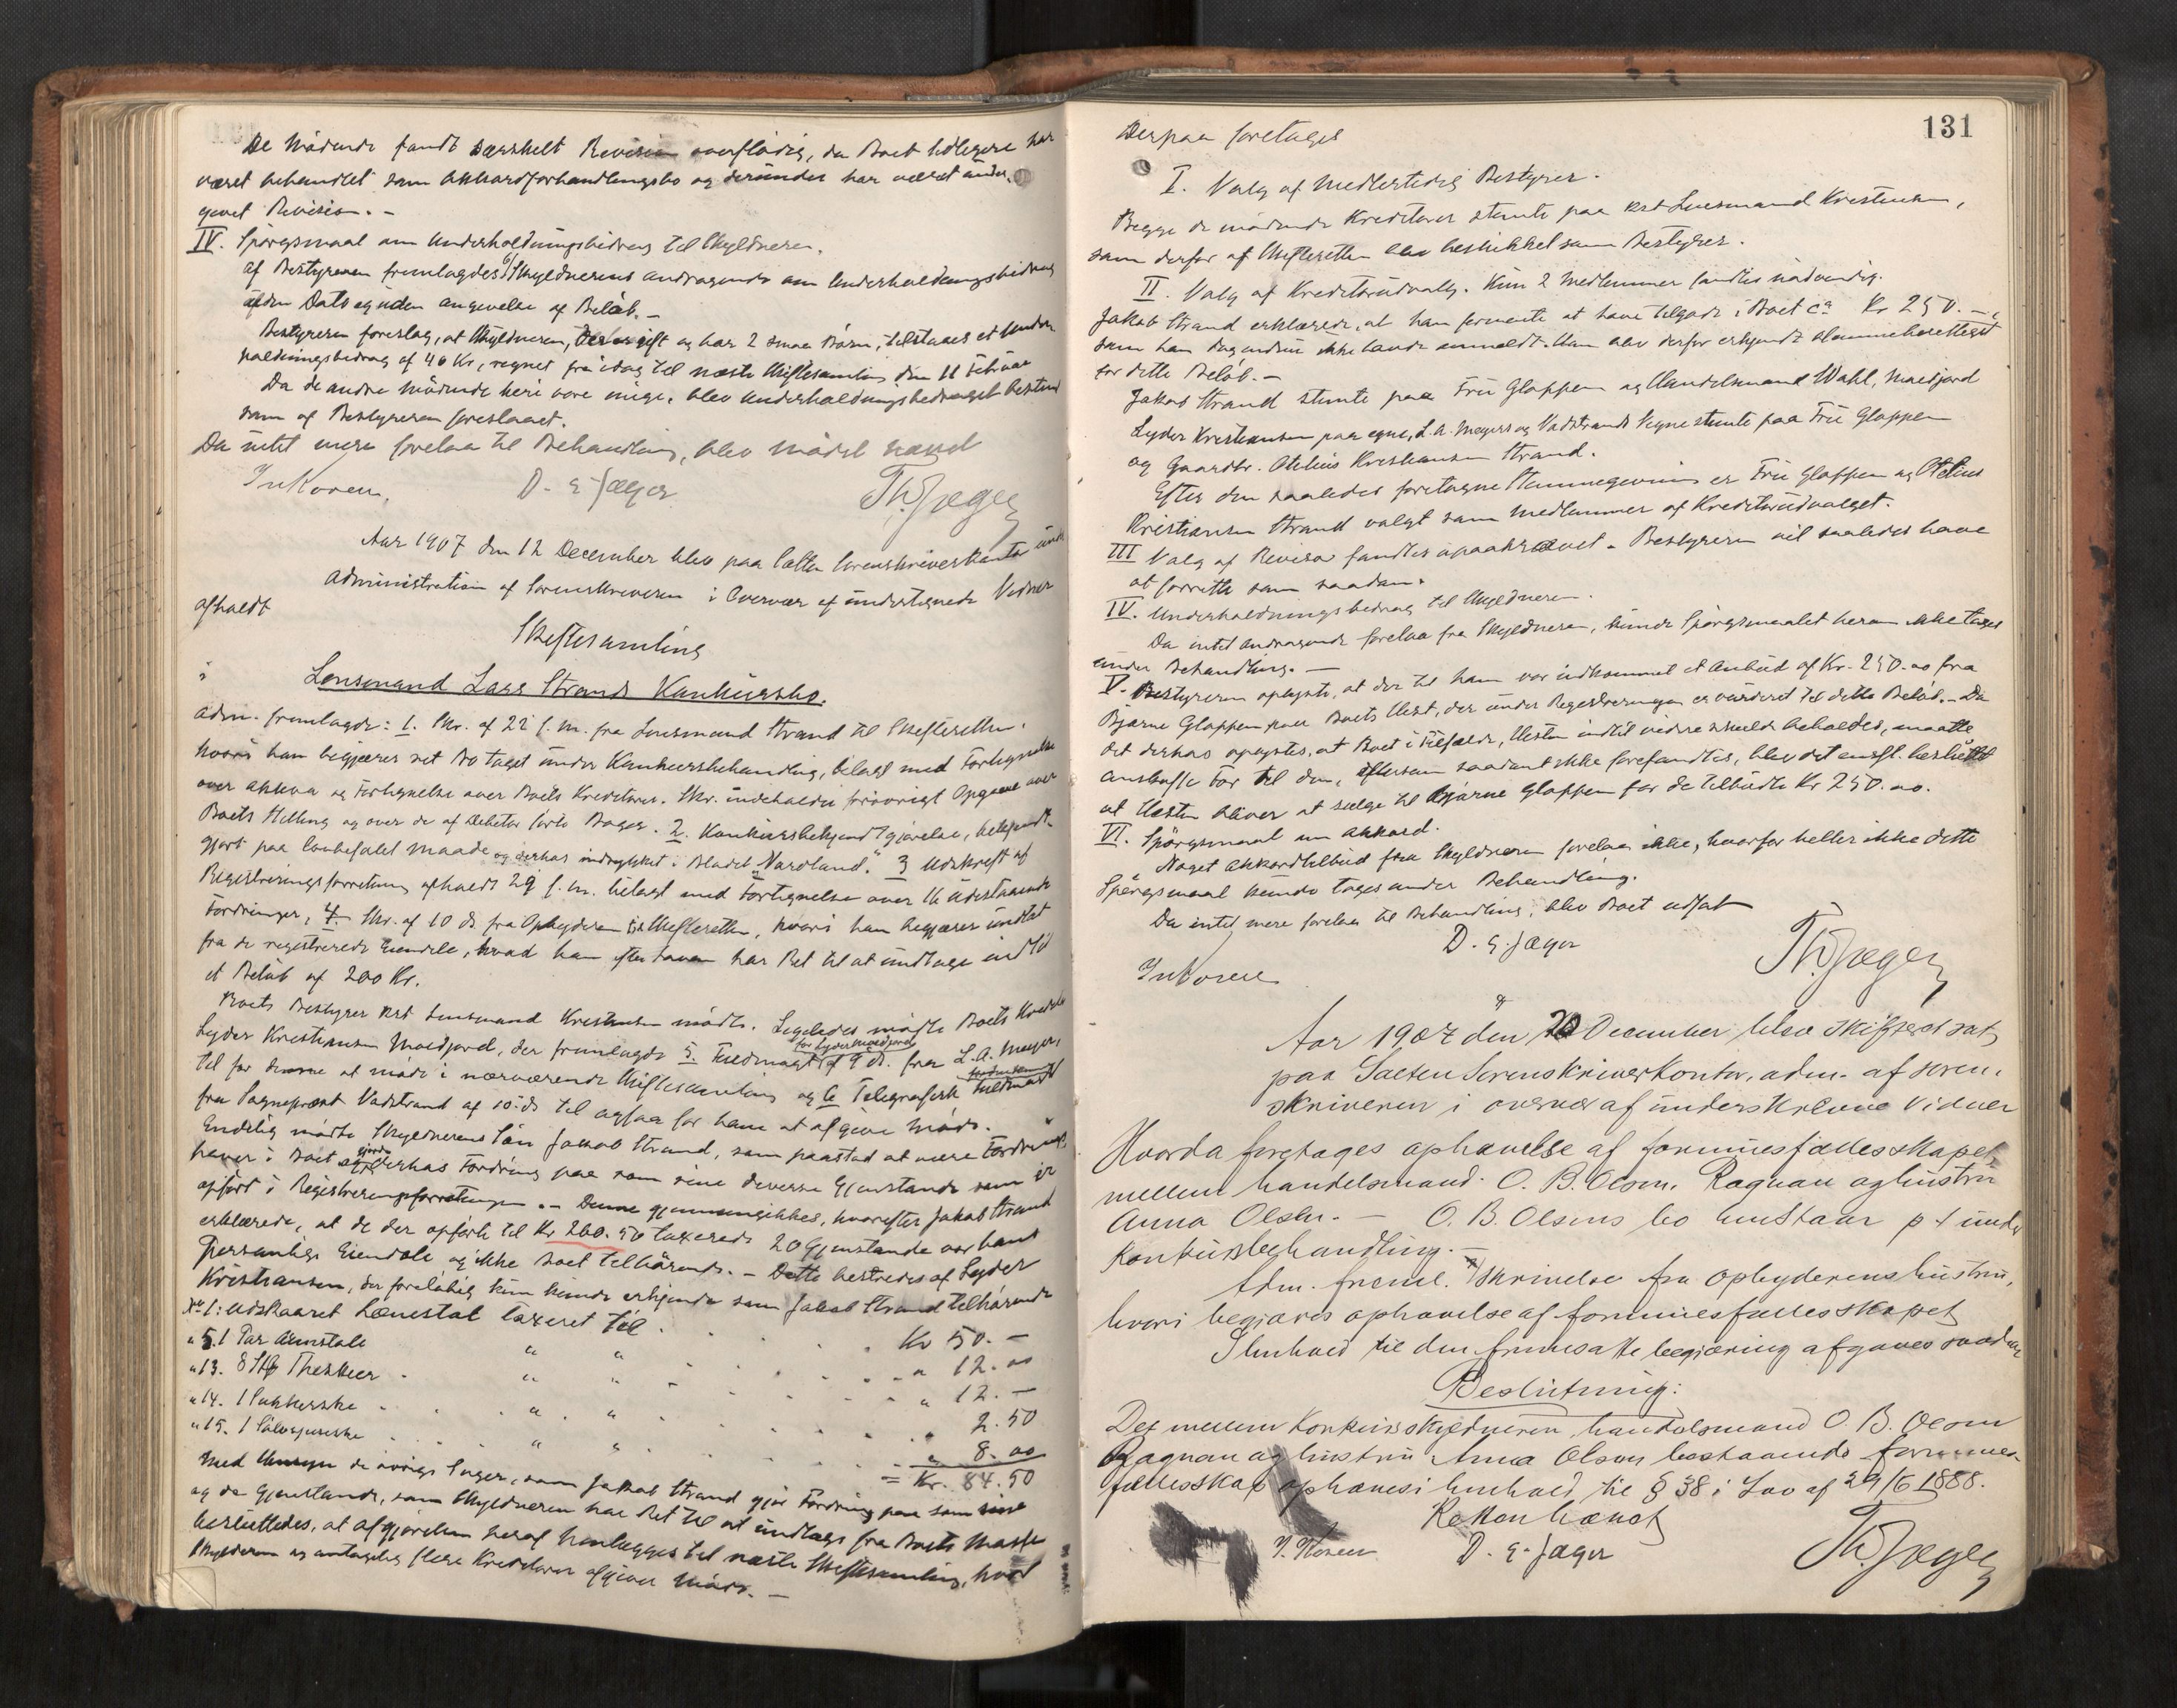 De mödende fandt særskelt Revision overflödig, da Boet tidligere har
været behandlet som Akkordforhandlingsbo og derunder har været under-
givet Revision. -
IV. Spörgsmaal om Underholdningsbidrag til Skyldneren.
Af Bestyreren fremlagdes 6) Skyldnerens Andragende om Underholdningsbidrag
uden Dato og uden Angivelse af Belöb. -
Bestyreren foreslog, at Skyldneren, der er gift og har 2 smaa Börn, tilstaaes et Under-
holdningsbidrag af 40 Kr, regnet fra idag til næste Skiftesamling den 11 Februar
Da de andre mödende heri vare enige, blev Underholdningsbidraget bestemt
som af Bestyreren foreslaaet.
Da intet mere forelaa til Behandling, blev mödet hævet
D. E. Jæger
Th. Jæger
Aar 1907 den 12 December blev paa Salten Sorenskriverkontor under
Administration af Sorenskriveren i Overvær af undertegnede Vidner
afholdt
Skiftesamling
i
Lensmand Lars Strands Konkursbo.
Adm. fremlagde: 1. Skr. af 22 f. m. fra Lensmand Strand til Skifteretten.
hvori han begjærer sit Bo taget under Konkursbehandling, bilagt med Fortegnelse
over Aktiva og Fortegnelse over Boets Kreditorer. Skr. indeholder forövrigt Opgave over
Boets Stilling og over de af Debitor förte Böger. 2. Konkursbekjendtgjörelse, bekjendt-
gjort paa lovbefalet Maade og derhos indrykket i Bladet "Nordland." 3 Udskrift af
Registreringsforretning afholdt 29 f. m. bilagt med Fortegnelse over 16 udestaaende
Fordringer, 4. Skr. af 10 ds. fra Opbyderen til Skifteretten, hvori han begjærer undtat
fra de registrerede Eiendele, hvad han efter Loven har Ret til at undtage indtil
et Belöb af 200 Kr.
Boets Bestyrer kst Lensmand Kristensen mödte. Ligeledes mödte Boets Kreditor
Lyder Kristiansen Moldjord, der fremlagde 5. Fuldmagt for Lyder Moldjord af 9 ds. fra L. A. Meyer,
til for denne at möde i nærværende Skiftesamling og 6 Telegrafisk Fuldmagt
fra Sogneprest Vadstrand af 10 ds til ogsaa for ham at afgive Möde. -
Endelig mödte Skyldnerens Sön Jakob Strand, som paastod at være Fordrings-
haver i Boet og gjorde derhos Fordring paa som sine diverse Gjenstande som er
opfört i Registreringsforretningen. - Denne gjennemgikkes, hvorefter Jakob Strand
erklærede, at de der opförte til Kr 260.50 taxerede 20 Gjenstande var hans
personlige Eiendele og ikke Boet tilhörende. - Dette bestredes af Lyder
Kristiansen, der foreløbig kun kunde erkjende som Jakob Strand tilhörende
No 1: Udskaaret Lænestol taxeret til . . . Kr 50. -
" 5. 1 Par Armstole " " . . . " 12.00
" 13. 8 Stk Theskeer . " " . . . " 12. -
" 14. 1 Sukkerske . . " " . . . " 2.50
" 15. 1 Sölvspiseske . . " " . . . " 8.00
= Kr. 84.50
Med Hensyn de övrige Sager, som Jakob Strand gjör Fordring paa som sine
og de Gjenstande, som Skyldneren har Ret til at undtage fra Boets Masse
besluttedes, at Afgjörelsen heraf henlægges til næste Skiftesamling, hvor
Skyldneren og antagelig flere Kreditorer afgiver Möde. -
131
Derpaa foretages
I. Valg af Medlertidig Bestyrer.
Begge de mödende Kreditorer stemte paa kst Lensmand Kristensen,
som derfor af Skifteretten blev beskikket som Bestyrer.
II. Valg af Kreditorudvalg. Kun 2 Medlemmer fandtes nödvendig.
Jakob Strand erklærede, at han formente at have tilgode i Boet ca Kr 250. -,
som han dog endnu ikke havde anmeldt. Han blev derfor erkjendt stemmeberettiget
for dette Belöb. -
Jakob Strand stemte paa Fru Gloppen og Handelsmand Wahl, Moldjord
Lyder Kristiansen paa egne, L. A. Meyers og Vadstrands Vegne stemte paa Fru Gloppen
og Gaardbr. Otelius Kristiansen Strand.
Efter den saaledes foretagne Stemmegivning er Fru Gloppen og Otelius
Kristiansen Strand valgt som Medlemmer af Kreditorudvalget.
III Valg af Revisor fandtes upaakrævet. Bestyreren vil saaledes have
at forrette som saadan.
IV. Underholdningsbidrag til Skyldneren.
Da intet Andragende forelaa fra Skyldneren, kunde Spörgsmaalet herom ikke tages
under Behandling. -
V. Bestyreren oplyste, at der til ham var indkommet et Anbud af Kr. 250.00 fra
Bjarne Gloppen paa Boets Hest, der under Registreringen er vurderet til dette Belöb. - Da
det derhos oplystes, at Boet i Tilfælde, Hesten indtil videre skulde beholdes, maatte
anskaffeFör til den, eftersom saadant ikke forefandtes, blev det enst. besluttet
at Hesten bliver at sælge til Bjarne Gloppen for de tilbudte Kr 250.00.
VI. Spörgsmaal om Akkord.
Noget Akkordtilbud fra Skyldneren forelaa ikke, hvorfor heller ikke dette
Spörgsmaal kunde tages under Behandling.
Da intet mere forelaa til Behandling, blev Boet udsat
D. E. Jæger
Th. Jæger
Aar 1907 den 20 December blev skifteret sat
paa Salten Sorenskriverkontor, adm. af soren-
skriveren i overvær af underskrevne vidner
Hvorda foretages ophævelse af formuesfællesskapet
mellem handelsmand O. B. Olsen, Rognan og hustru
Anna Olsen. - O. B. Olsens bo henstaar p t under
Konkursbehandling. -
Adm. freml. skrivelse fra opbyderens hustru,
hvori begjæres ophævelse af formuesfællesskapet
I henhold til den fremsatte begjæring afgaves saadan
Beslutning:
Det mellem konkursskyldneren, handelsmand O. B. Olsen
Rognan og hustru Anna Olsen bestaaende formues-
fællesskab ophæves i henhold til § 38 i Lov af 29/6 1888.
Retten hævet
D. E. Jæger
Th. Jæger